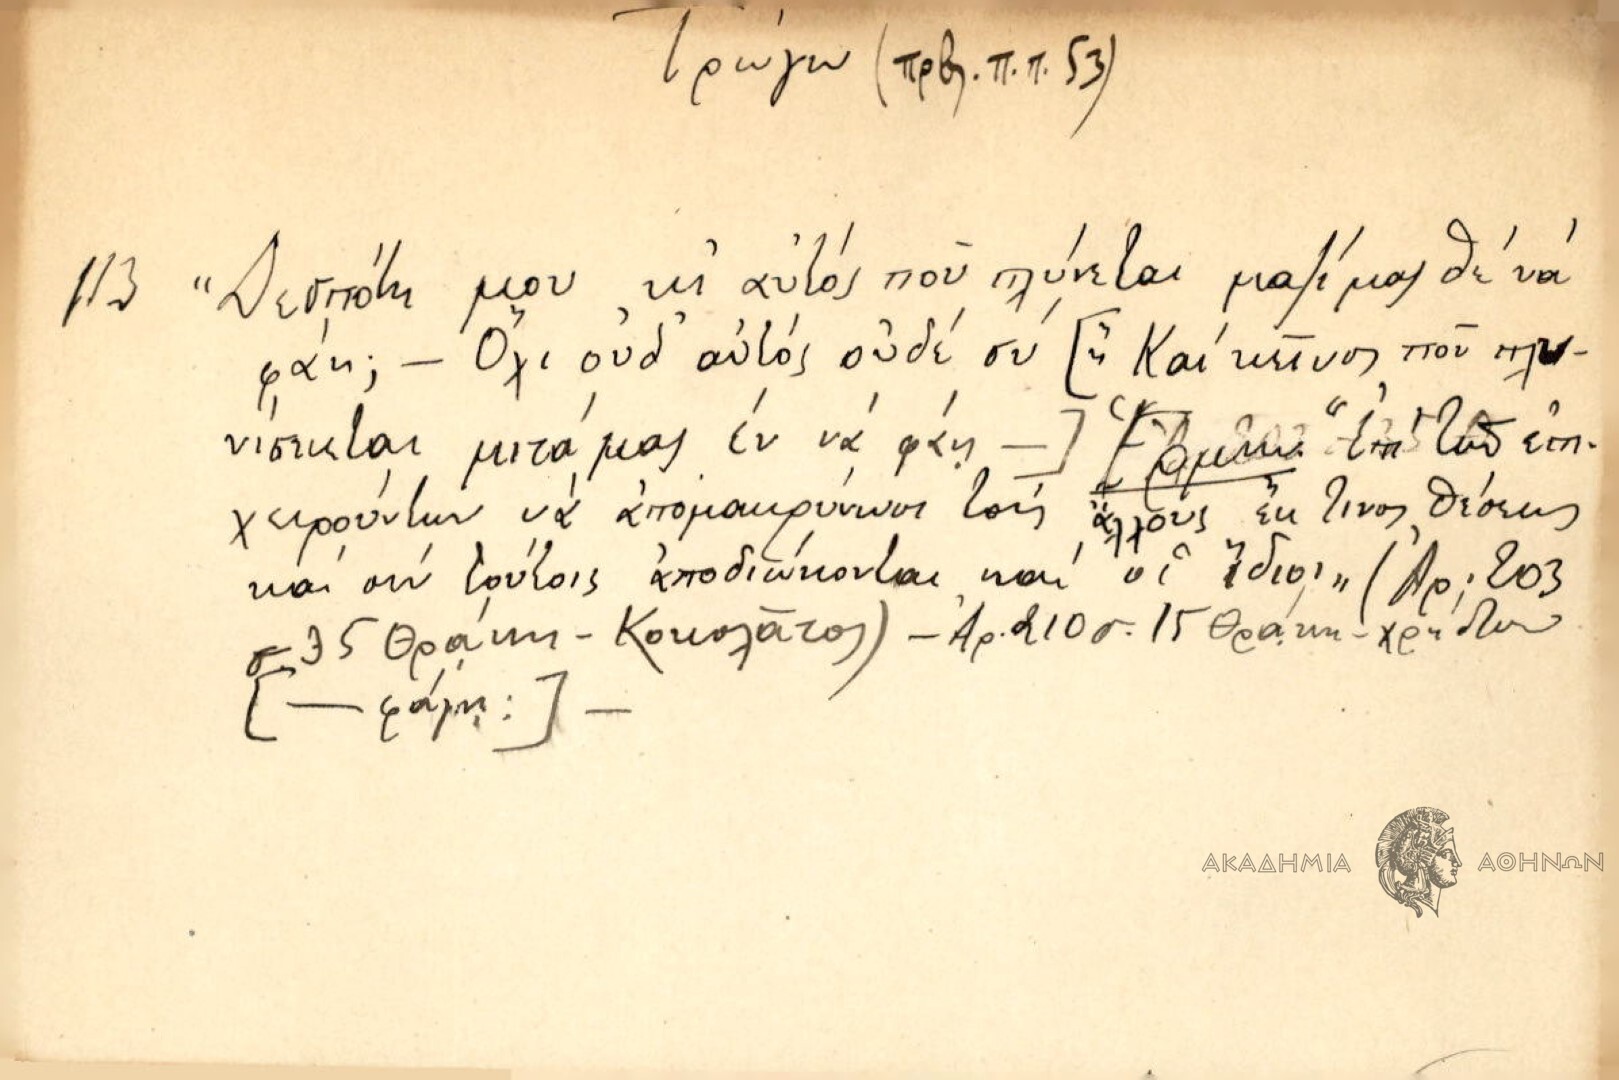 Τρώγω (πρβλ. π.π. 53)
113 "Δεσπότη μου κι αὐτός ποῦ πλύνεται μαζί μας θέ νά
φάη; — Ὄχι οὐδ' αὐτός οὐδέ σύ [ἤ Καί κεῖνος ποῦ πλυ-
νίσκεται μετά μας ἐν νά φάῃ —] "Ἐπί τῶν ἐπι-
χειρούντων νά ἀπομακρύνωσι τούς ἄλλους ἔκ τινος θέσεως
καί σύν τούτοις ἀποδιώκονται καί οἱ ἴδιοι" (Ἀρ. 203
σ. 35 Θράκη - Κουκολᾶτος) — Ἀρ. 210 σ. 15 Θράκη -
[— φάγῃ;] —
ΑΚΑΔΗΜΙΑ ΑΘΗΝΩΝ